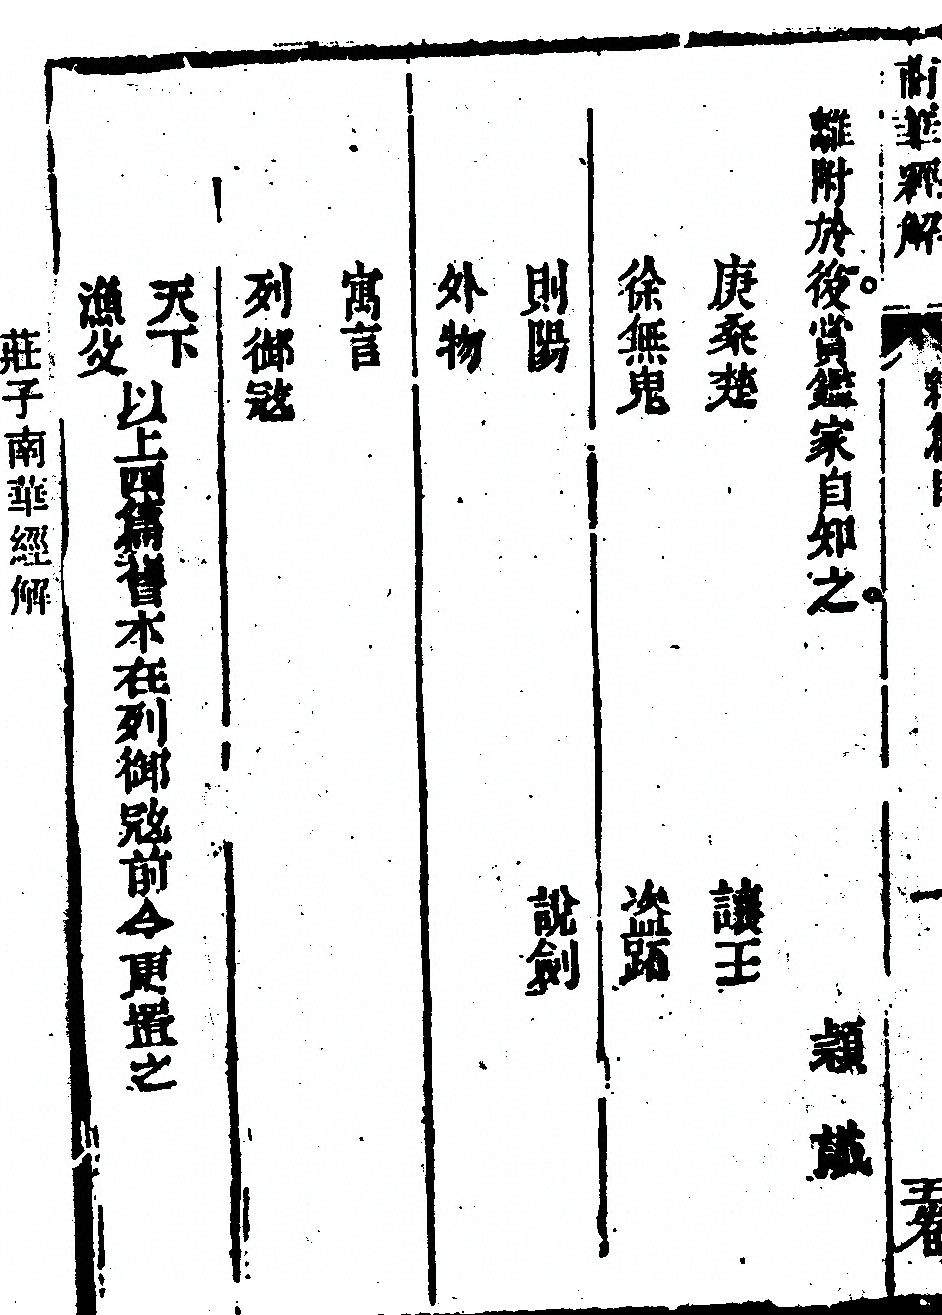 南華經解
一
離附於後。賞鑑家自知之。
穎識
庚桑楚
讓王
徐無鬼
盜跖
則陽
說劍
外物
寓言
列御寇
天下
漁父
以上四篇舊本在列御寇前今更置之
莊子南華經解